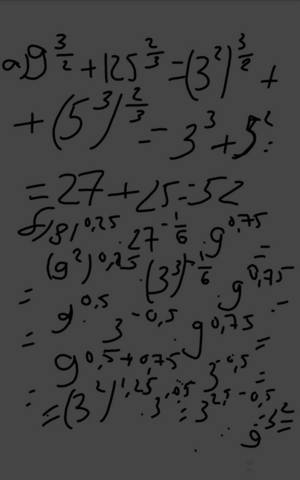 а) 9^{3/2} + 125^{2/3} = (3^2)^{3/2} +
+ (5^3)^{2/3} = 3^3 + 5^2 =
= 27 + 25 = 52
б) 81^{0,25} · 27^{-1/6} · 9^{0,75} =
= (9^2)^{0,25} · (3^3)^{-1/6} · 9^{0,75} =
= 9^{0,5} · 3^{-0,5} · 9^{0,75} =
= 9^{0,5+0,75} · 3^{-0,5} =
= (3^2)^{1,25} · 3^{-0,5} = 3^{2,5-0,5} = 3^2 =
= 9